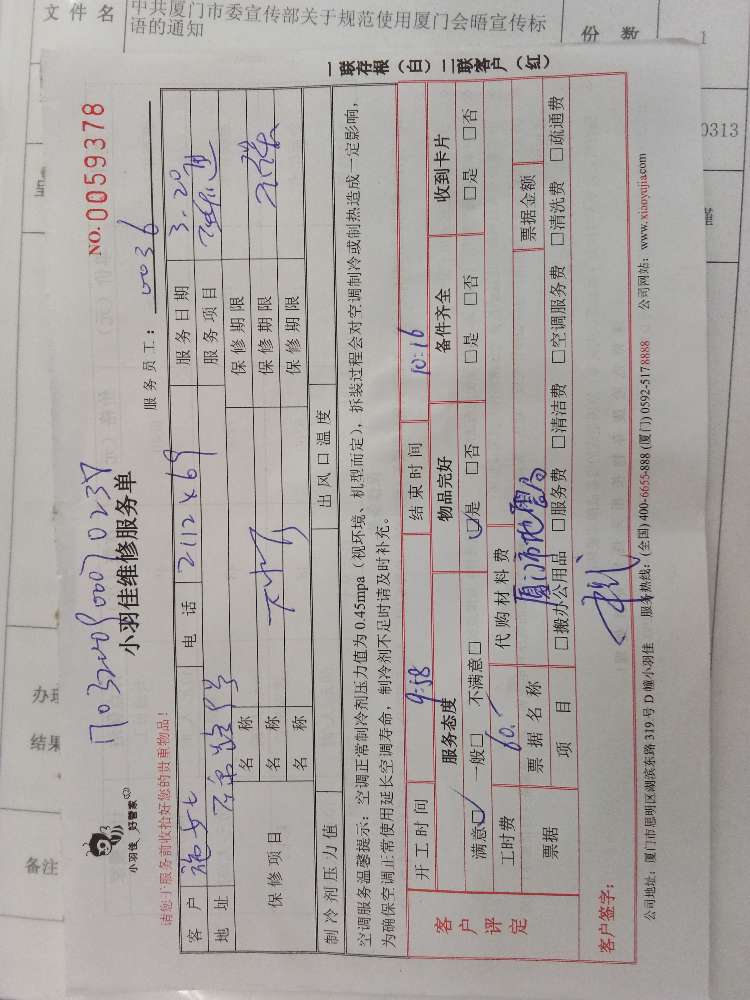 文件名
中共厦门市委宣传部关于规范使用厦门会晤宣传标
语的通知
份数
1
0313
办理
结果
备注
一联存根（白）二联客户（红）
NO. 0059378
小羽佳 好管家
小羽佳维修服务单
服务员工： 0036
请您于服务前收拾好您的贵重物品！
客户 电话 2112469 服务日期 3.20
地址 服务项目
保修项目 名称 保修期限
名称 保修期限
名称 保修期限
制冷剂压力值 出风口温度
空调服务温馨提示：空调正常制冷剂压力值为 0.45mpa（视环境、机型而定），拆装过程会对空调制冷或制热造成一定影响，
为确保空调正常使用延长空调寿命，制冷剂不足时请及时补充。
客户评定
开工时间 9:58 结束时间 10:16
服务态度 物品完好 备件齐全 收到卡片
满意□ 一般□ 不满意□ □是 □否 □是 □否 □是 □否
工时费 60.- 代购材料费
票据 票据名称 厦门市地震局 票据金额
项目 □搬办公用品 □服务费 □清洁费 □空调服务费 □清洗费 □疏通费
客户签字：
公司地址：厦门市思明区湖滨东路 319 号 D 幢小羽佳 服务热线：(全国) 400-6655-888 (厦门) 0592-5178888 公司网站：www.xiaoyujia.com